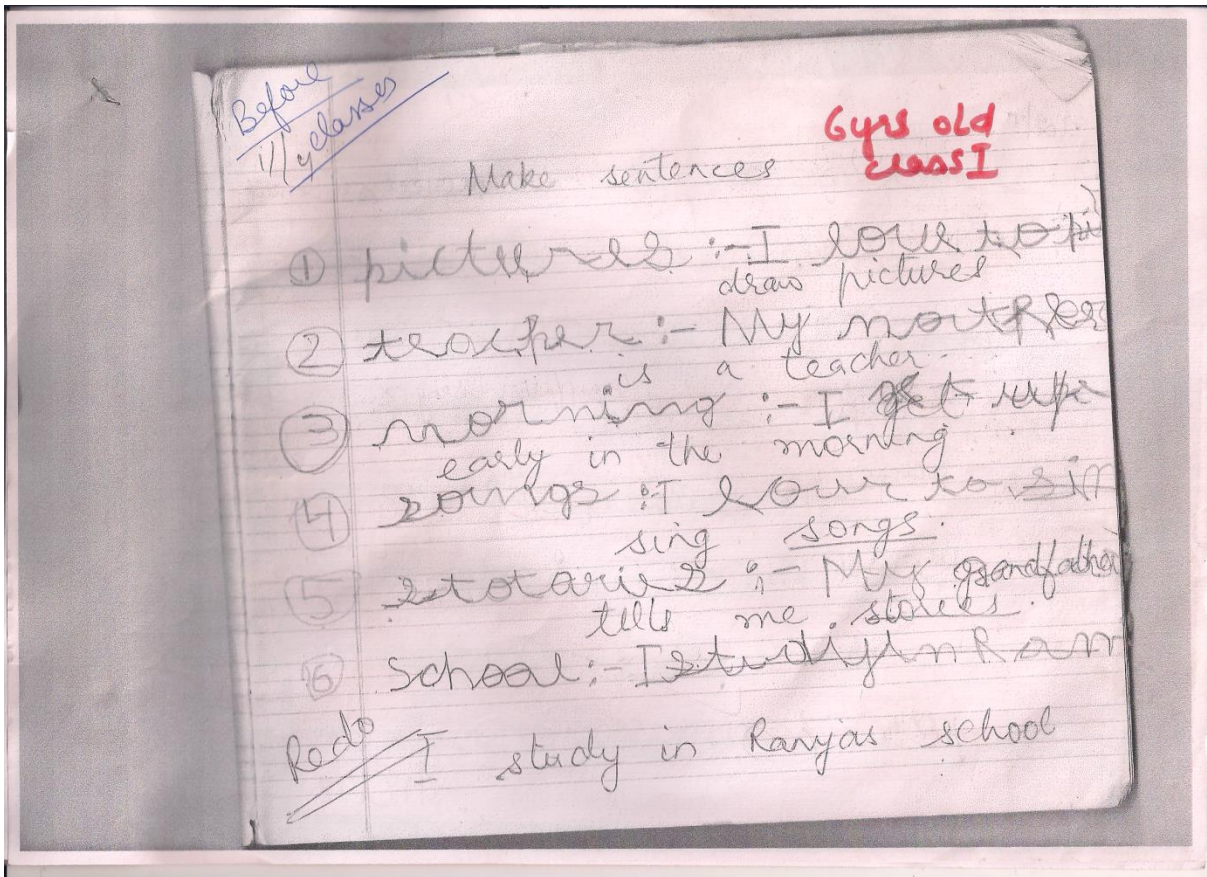 Before
My classes
6yrs old
class I
Make sentences
① pictures :- I love to pi
draw pictures
② teacher :- My mother
is a teacher.
③ morning :- I get up
early in the morning
④ songs :- I love to sin
sing songs.
⑤ stotaries :- My grandfather
tells me stories.
⑥ School :- I study in Ram
Redo
I study in school